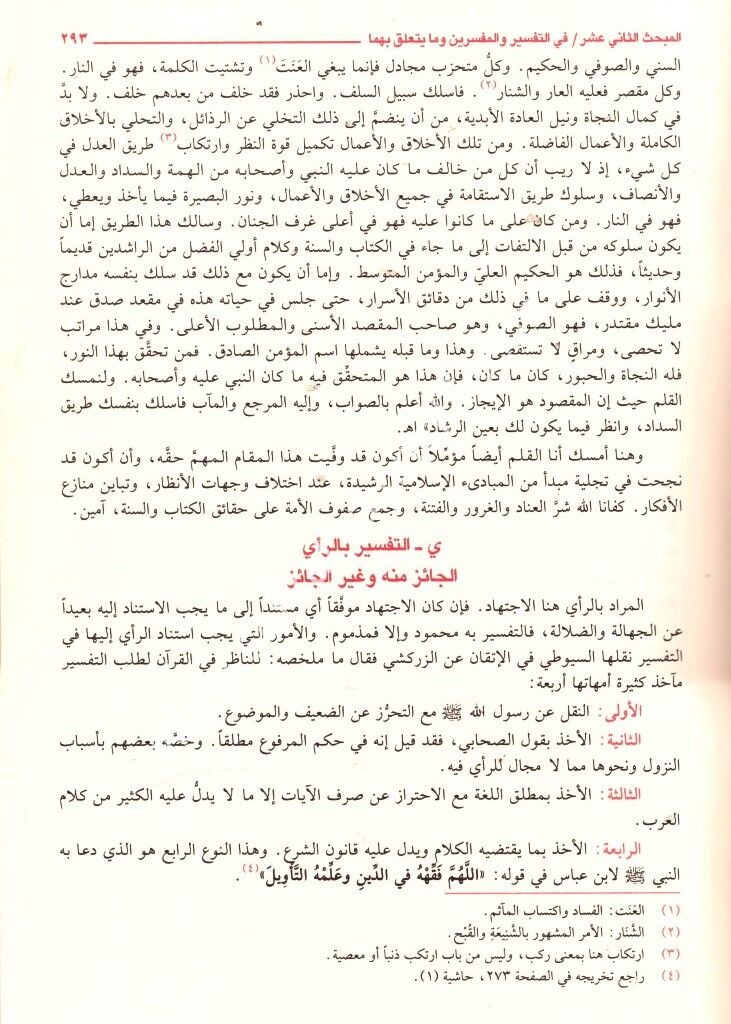 المبحث الثاني عشر / في التفسير والمفسرين وما يتعلق بهما ٢٩٣
السني والصوفي والحكيم. وكلُّ متحزب مجادل فإنما يبغي العَنَتَ(١) وتشتيت الكلمة، فهو في النار.
وكل مقصر فعليه العار والشنار(٢). فاسلك سبيل السلف. واحذر فقد خلف من بعدهم خلف. ولا بدَّ
في كمال النجاة ونيل العادة الأبدية، من أن ينضمَّ إلى ذلك التخلي عن الرذائل، والتحلي بالأخلاق
الكاملة والأعمال الفاضلة. ومن تلك الأخلاق والأعمال تكميل قوة النظر وارتكاب(٣) طريق العدل في
كل شيء، إذ لا ريب أن كل من خالف ما كان عليه النبي وأصحابه من الهمة والسداد والعدل
والأنصاف، وسلوك طريق الاستقامة في جميع الأخلاق والأعمال، ونور البصيرة فيما يأخذ ويعطي،
فهو في النار. ومن كان على ما كانوا عليه فهو في أعلى غرف الجنان. وسالك هذا الطريق إما أن
يكون سلوكه من قبل الالتفات إلى ما جاء في الكتاب والسنة وكلام أولي الفضل من الراشدين قديماً
وحديثاً، فذلك هو الحكيم العليّ والمؤمن المتوسط. وإما أن يكون مع ذلك قد سلك بنفسه مدارج
الأنوار، ووقف على ما في ذلك من دقائق الأسرار، حتى جلس في حياته هذه في مقعد صدق عند
مليك مقتدر، فهو الصوفي، وهو صاحب المقصد الأسنى والمطلوب الأعلى. وفي هذا مراتب
لا تحصى، ومراقٍ لا تستقصى. وهذا وما قبله يشملها اسم المؤمن الصادق. فمن تحقَّق بهذا النور،
فله النجاة والحبور، كان ما كان، فإن هذا هو المتحقِّق فيه ما كان النبي عليه وأصحابه. ولنمسك
القلم حيث إن المقصود هو الإيجاز. والله أعلم بالصواب، وإليه المرجع والمآب فاسلك بنفسك طريق
السداد، وانظر فيما يكون لك بعين الرشاد» اهـ.
وهنا أمسك أنا القلم أيضاً مؤمِّلاً أن أكون قد وفَّيت هذا المقام المهمَّ حقَّه، وأن أكون قد
نجحت في تجلية مبدأ من المبادىء الإسلامية الرشيدة، عند اختلاف وجهات الأنظار، وتباين منازع
الأفكار. كفانا الله شرَّ العناد والغرور والفتنة، وجمع صفوف الأمة على حقائق الكتاب والسنة، آمين.
ي ـ التفسير بالرأي
الجائز منه وغير الجائز
المراد بالرأي هنا الاجتهاد. فإن كان الاجتهاد موفَّقاً أي مستنداً إلى ما يجب الاستناد إليه بعيداً
عن الجهالة والضلالة، فالتفسير به محمود وإلا فمذموم. والأمور التي يجب استناد الرأي إليها في
التفسير نقلها السيوطي في الإتقان عن الزركشي فقال ما ملخصه: للناظر في القرآن لطلب التفسير
مآخذ كثيرة أمهاتها أربعة:
الأولى: النقل عن رسول الله ﷺ مع التحرُّز عن الضعيف والموضوع.
الثانية: الأخذ بقول الصحابي، فقد قيل إنه في حكم المرفوع مطلقاً. وخصَّه بعضهم بأسباب
النزول ونحوها مما لا مجال للرأي فيه.
الثالثة: الأخذ بمطلق اللغة مع الاحتراز عن صرف الآيات إلا ما لا يدلُّ عليه الكثير من كلام
العرب.
الرابعة: الأخذ بما يقتضيه الكلام ويدل عليه قانون الشرع. وهذا النوع الرابع هو الذي دعا به
النبي ﷺ لابن عباس في قوله: «اللَّهُمَّ فَقِّهْهُ في الدِّينِ وعَلِّمْهُ التَّأْوِيلَ»(٤).
(١) العَنَت: الفساد واكتساب المآثم.
(٢) الشَّنَار: الأمر المشهور بالشَّنِيعَةِ والقُبْح.
(٣) ارتكاب هنا بمعنى ركب، وليس من باب ارتكب ذنباً أو معصية.
(٤) راجع تخريجه في الصفحة ٢٧٣، حاشية (١).